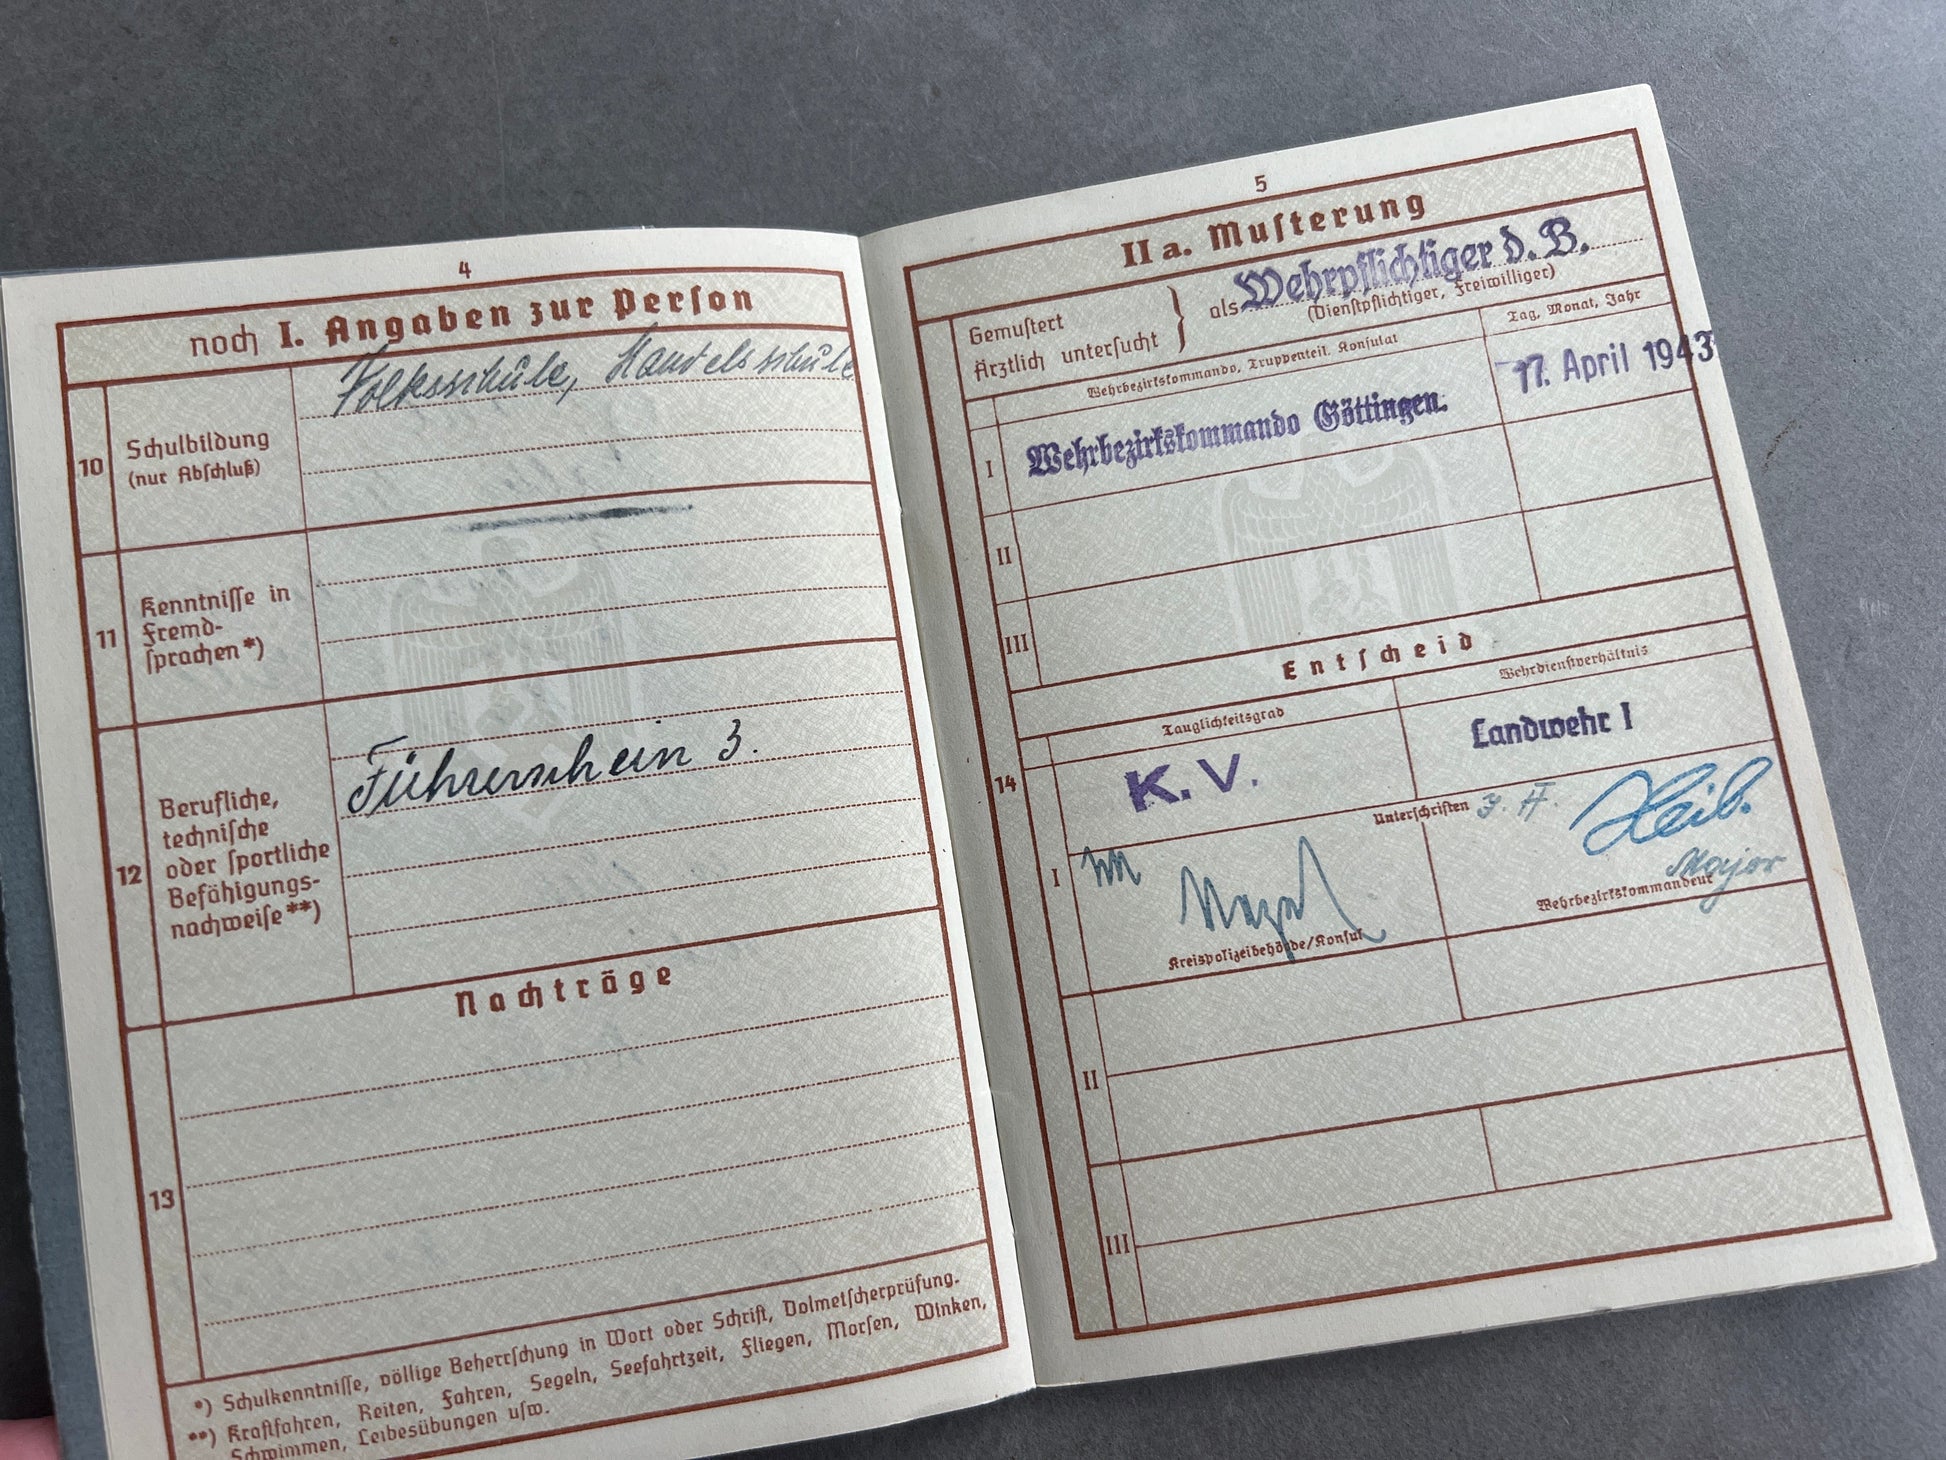 4
noch I. Angaben zur Person
10
Schulbildung
(nur Abschluß)
Volksschule, Handelsschule
11
Kenntnisse in
Fremd-
sprachen *)
12
Berufliche,
technische
oder sportliche
Befähigungs-
nachweise **)
Führerschein 3.
Nachträge
13
*) Schulkenntnisse, völlige Beherrschung in Wort oder Schrift, Dolmetscherprüfung.
**) Kraftfahren, Reiten, Fahren, Segeln, Seefahrtzeit, Fliegen, Morsen, Winken,
Schwimmen, Leibesübungen usw.
5
IIa. Musterung
Gemustert
Ärztlich untersucht
} als Wehrpflichtiger d. B.
(Dienstpflichtiger, Freiwilliger)
Wehrbezirkskommando, Truppenteil, Konsulat
Tag, Monat, Jahr
I
Wehrbezirkskommando Göttingen.
17. April 1943
II
III
Entscheid
14
Tauglichkeitsgrad
Wehrdienstverhältnis
K. V.
Landwehr I
I
Unterschriften
Major
Kreispolizeibehörde/Konsul
Wehrbezirkskommandeur
II
III